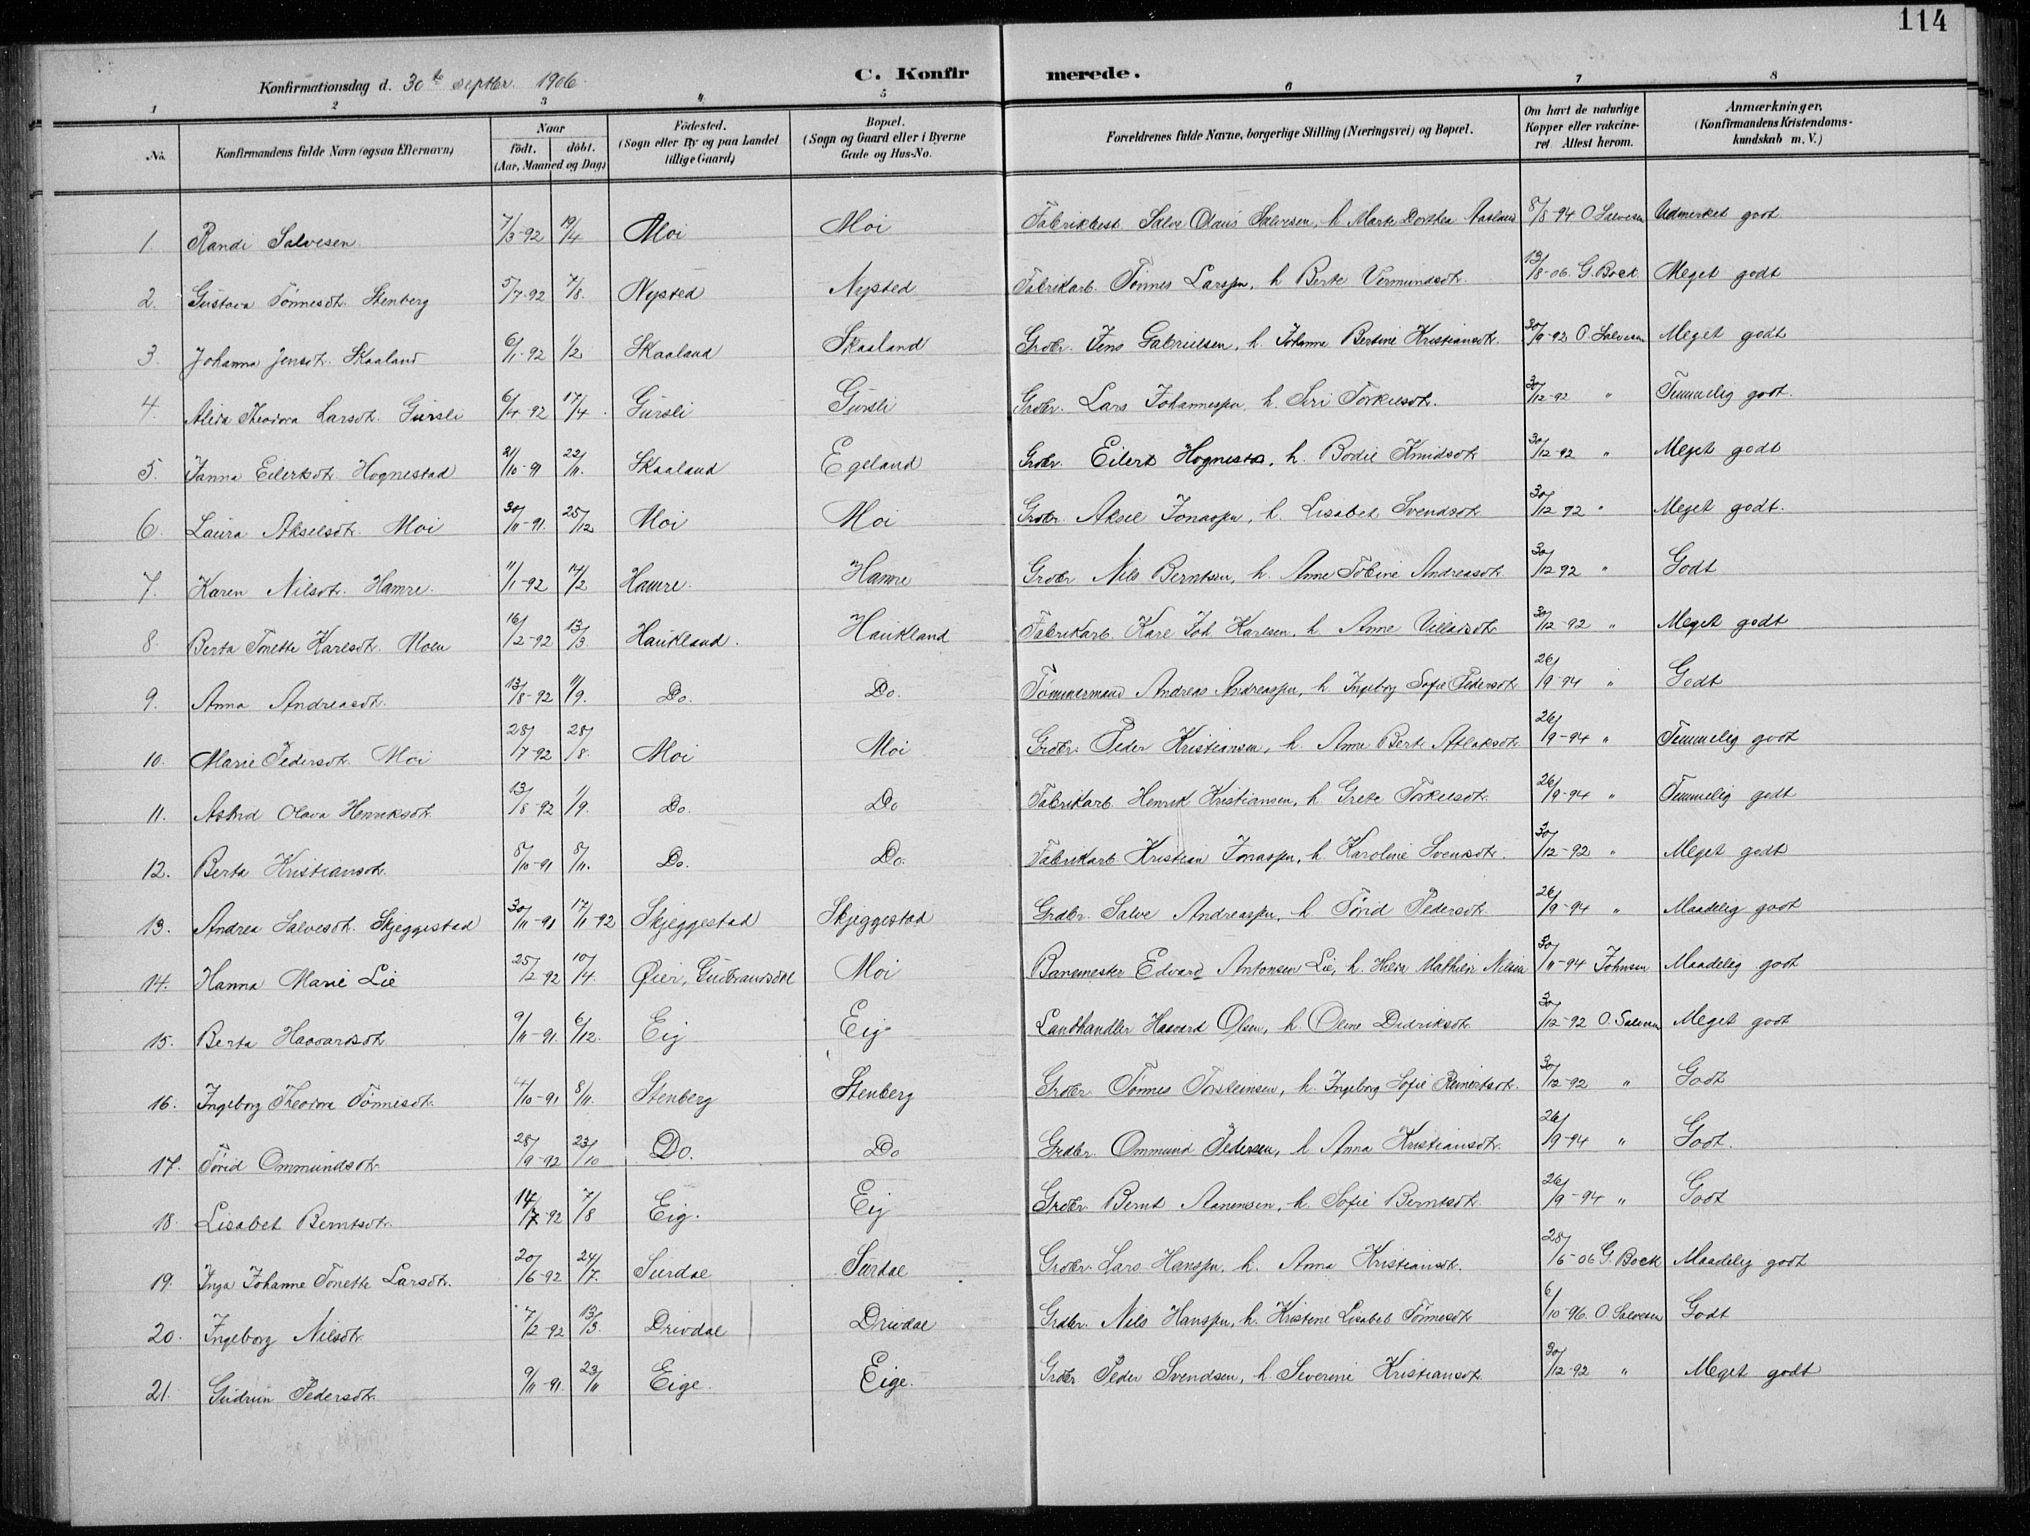 114
Konfirmationsdag d. 30te septbr. 1906.
C. Konfirmerede.
1 2 3 4 5 6 7 8
No. Konfirmandens fulde Navn (ogsaa Efternavn) Naar født. døbt. (Aar, Maaned og Dag) Fødested. (Sogn eller By og paa Landet tillige Gaard) Bopæl. (Sogn og Gaard eller i Byerne Gade og Hus-No. Forældrenes fulde Navne, borgerlige Stilling (Næringsvei) og Bopæl. Om havt de naturlige Kopper eller vakcineret. Attest herom. Anmærkninger. (Konfirmandens Kristendomskundskab m. V.)
1 Randi Salvesen 7/3-92 19/4 Moi Moi Fabrikbest. Salve Olaus Salvesen, h. Marte Dorthea 8/8-94 O Salvesen Udmerket godt
2. Gustava Tønnesdt. Stenberg 5/7-92 7/8. Nysted Nysted Fabrikarb. Tønnes Larsen, h. Berte Vermundsdt. 13/8-06. G. Bock Meget godt
3. Johanna Jensdt. Skaaland 6/1-92 1/2 Skaaland Skaaland Grdbr. Jens Gabrielsen, h. Johanne Bertine Kristiansdt. 30/9-92 O Salvesen Meget godt
4. Alida Theodora Larsdt. Gursli 6/4-92 17/4. Gursli Gursli Grdbr. Lars Johannesen, h. Siri Torkelsdt. 30/12-92 " Temmelig godt.
5. Janna Eilertsdt. Hognestad 21/10-91 22/11. Skaaland Egeland Grdbr. Eilert Hognestad, h. Bodil Knudsdt 30/12-92 " Meget godt
6. Laura Akselsdt. Moi 30/11-91. 25/12 Moi Moi Grdbr. Aksel Jonassen, h. Lisabet Svendsdt 30/12 92 " Meget godt.
7. Karen Nilsdt. Hamre. 11/1-92 7/2 Hamre. Hamre Grdbr Nils Berntsen, h. Anne Tobine Andreasdt 30/12 92 " Godt
8. Berta Tonette Karlsdt. Moen 16/2-92 13/3. Haukland. Haukland Fabrikarb. Karl Joh Karlsen, h Anne Villadsdt. 30/12-92 " Meget godt
9. Anna Andreasdt. 13/8-92 11/9. Do. Do. Tømmermand Andreas Andreassen, h Ingeborg Sofie Pedersdt 26/9-94 " Godt
10. Marie Pedersdt. Moi 28/7-92 28/8. Moi Moi Grdbr. Peder Kristiansen, h. Anne Berte Atlaksdt. 26/9-94 " Temmelig godt
11. Astrid Olava Henriksdt. 13/8-92 11/9. Do. Do Fabrikarb. Henrik Kristiansen, h Grete Torkelsdt. 26/9-94 " Temmelig godt
12. Berta Kristiansdt. 8/10-91 8/11. Do. Do. Fabrikarb Kristian Jonassen, h Karoline Svensdt. 30/12-92 " Meget godt
13. Andrea Salvesdt. Skjeggestad 30/11-91 17/11-92 Skjeggestad Skjeggestad Grdbr. Salve Andreassen, h Tørid Pedersdt. 26/9-94 " Maadelig godt
14. Hanna Marie Lie 25/2 92 10/4. Øier, Gudbrandsdal Moi Banemester Edvard Antonsen Lie, h. Helen Mathilde Nilsen 30/11-94 Johnsen Maadelig godt
15. Berta Haavardsdt 9/11-91. 6/12. Eig Eig Landhandler Haavard Olsen, h. Oline Didriksdt. 30/12-92 O. Salvesen Meget godt
16. Ingeborg Theodora Tønnesdt. 4/10-91 8/11. Stenberg Stenberg Grdbr. Tønnes Torsteinsen, h. Ingeborg Sofie Reinertsdt. 30/12-92 " Godt
17. Tørid Ommundsdt. 28/9-92 23/10 Do. Do Grdbr. Ommund Pedersen, h Anna Kristiansdt. 26/9-94 " Godt.
18. Lisabet Berntsdt. 14/7 92 7/8 Eig. Eig Grdbr. Bernt Aanensen, h. Sofie Berntsdt. 26/9-94 " Godt
19. Inga Johanne Tonette Larsdt. 20/6-92 24/7. Surdal Surdal Grdbr. Lars Hansen, h. Anna Kristiansdt. 28/6-06 G. Bock Maadelig godt
20. Ingeborg Nilsdt. 7/2-92 13/3. Drivdal Drivdal Grdbr. Nils Hansen, h. Kristene Lisabet Tønnesdt 6/10-96. O. Salvesen Godt
21. Gudrun Pedersdt. 9/11-91. 23/11 Eige. Eige. Grdbr Peder Svendsen, h Severine Kristiansdt. 30/12-92 " Meget godt